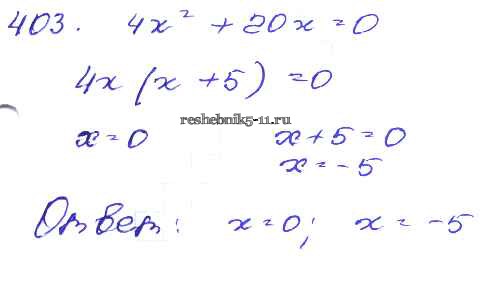 403. 4x² + 20x = 0
4x (x + 5) = 0
reshebnik5-11.ru
x = 0 x + 5 = 0
x = -5
Ответ: x = 0; x = -5